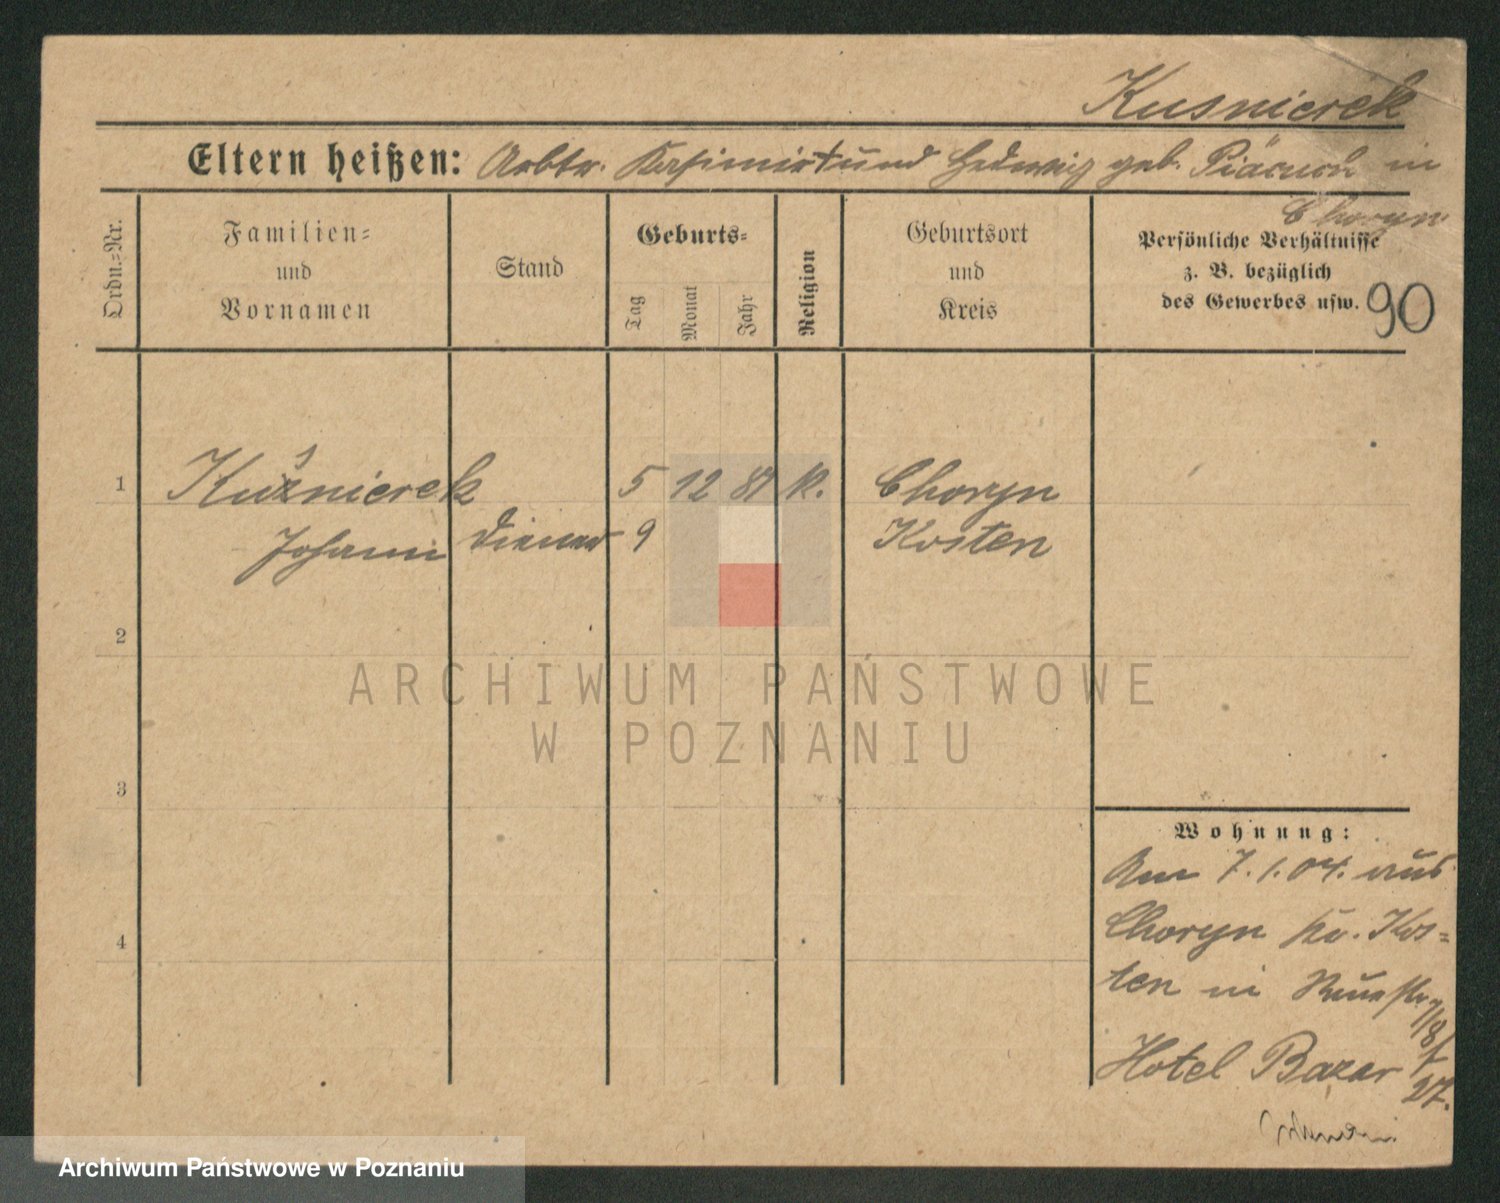 Kusnierek
Eltern heißen: Arbtr. Kasimir † und Hedwig geb. in
Choryn
Ordn.-Nr.
Familien-
und
Vornamen
Stand
Geburts-
Tag
Monat
Jahr
Religion
Geburtsort
und
Kreis
Persönliche Verhältnisse
z. B. bezüglich
des Gewerbes usw.
90
1
Kuźnierek 5 12 87 K. Choryn
Johann Diener 9 Kosten
2
ARCHIWUM PAŃSTWOWE
W POZNANIU
3
Wohnung:
Am 7.1.04. aus
Choryn Kr. Kos-
ten in Neuestr. 7/8
Hotel Bazar
27.
4
Archiwum Państwowe w Poznaniu